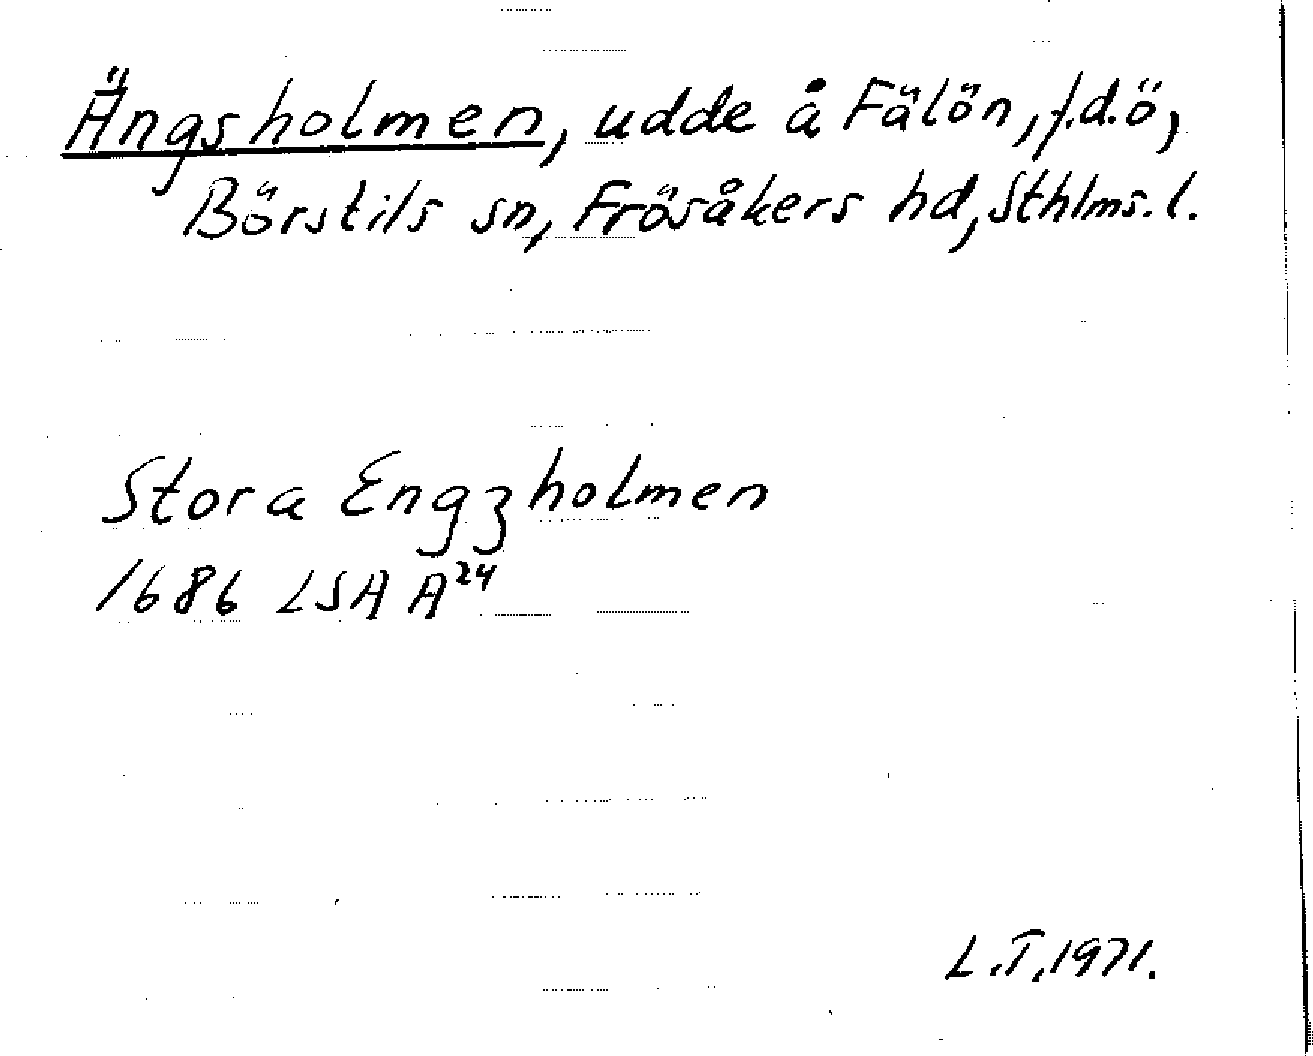 Ängsholmen, udde å Fälön, f.d.ö,
Börstils sn, Frösåkers hd, Sthlms. l.
Stora Engzholmen
1686 LSA A²⁴
L.T. 1971.